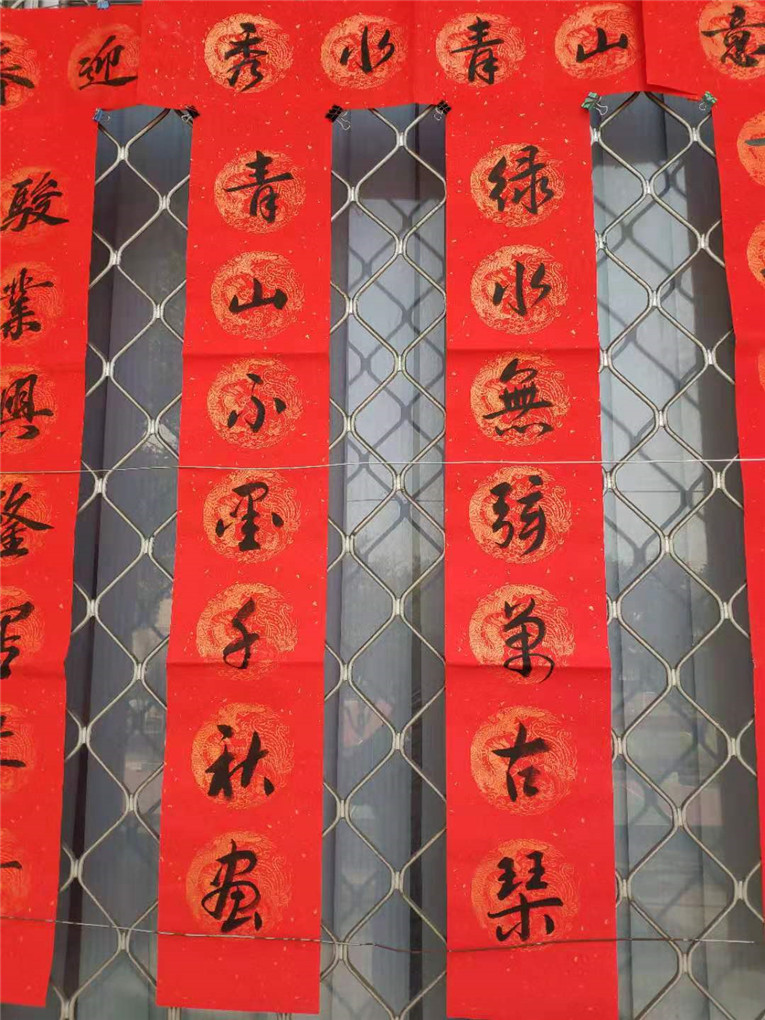 意
山青水秀
绿水無弦萬古琴
青山不墨千秋畫
迎春
駿業興隆